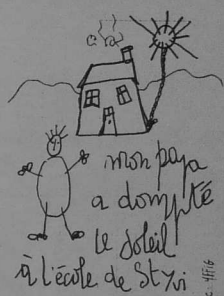 mon papa
a dompté
le soleil
à l'école de St Yvi